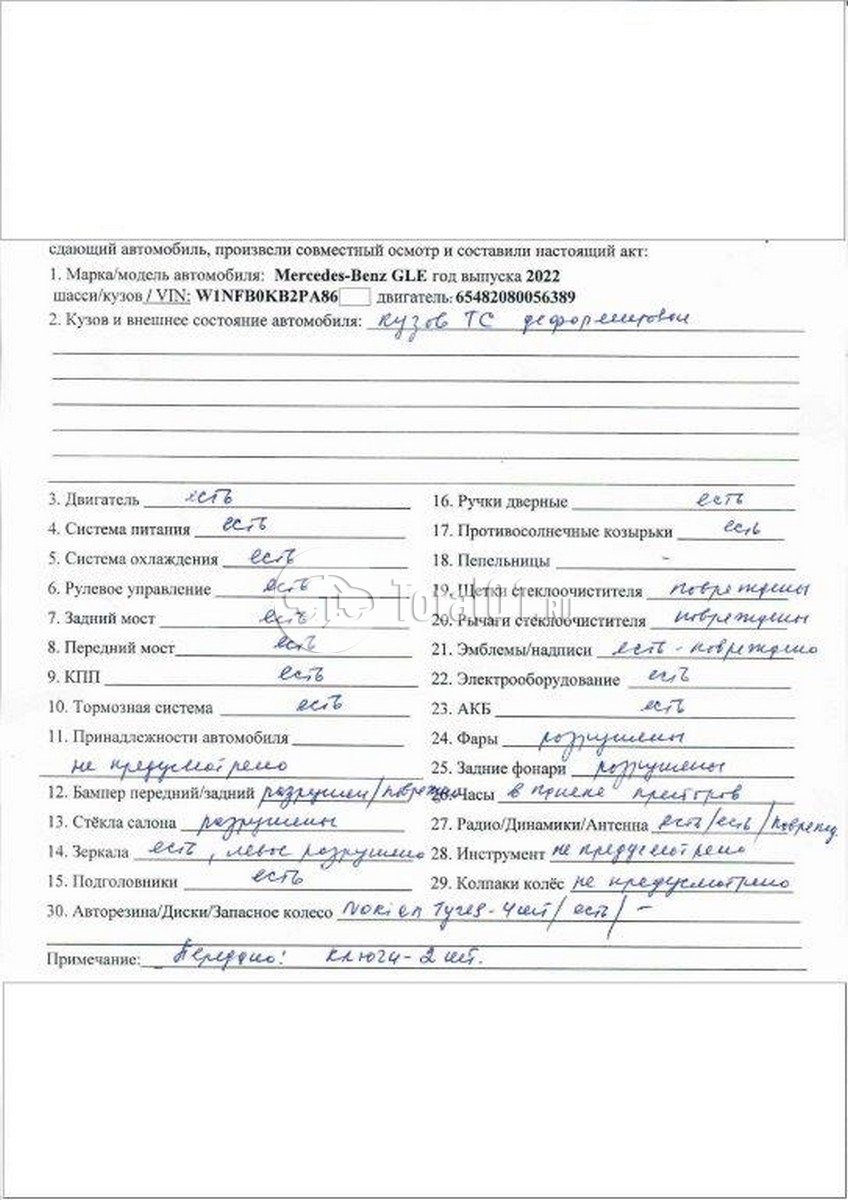 сдающий автомобиль, произвели совместный осмотр и составили настоящий акт:
1. Марка/модель автомобиля: Mercedes-Benz GLE год выпуска 2022
шасси/кузов / VIN: W1NFB0KB2PA86 двигатель: 65482080056389
2. Кузов и внешнее состояние автомобиля: кузов ТС деформирован
3. Двигатель есть
4. Система питания есть
5. Система охлаждения есть
6. Рулевое управление есть
7. Задний мост есть
8. Передний мост есть
9. КПП есть
10. Тормозная система есть
11. Принадлежности автомобиля
не предусмотрено
12. Бампер передний/задний разрушен/поврежден
13. Стёкла салона разрушены
14. Зеркала есть, левое разрушено
15. Подголовники есть
16. Ручки дверные есть
17. Противосолнечные козырьки есть
18. Пепельницы -
19. Щетки стеклоочистителя повреждены
20. Рычаги стеклоочистителя повреждены
21. Эмблемы/надписи есть - повреждено
22. Электрооборудование есть
23. АКБ есть
24. Фары разрушены
25. Задние фонари разрушены
26. Часы в панели приборов
27. Радио/Динамики/Антенна есть/есть/поврежд
28. Инструмент не предусмотрено
29. Колпаки колёс не предусмотрено
30. Авторезина/Диски/Запасное колесо Nokian Tyres - 4шт/есть/-
Примечание: Передано: ключи - 2 шт.
Total01.RU